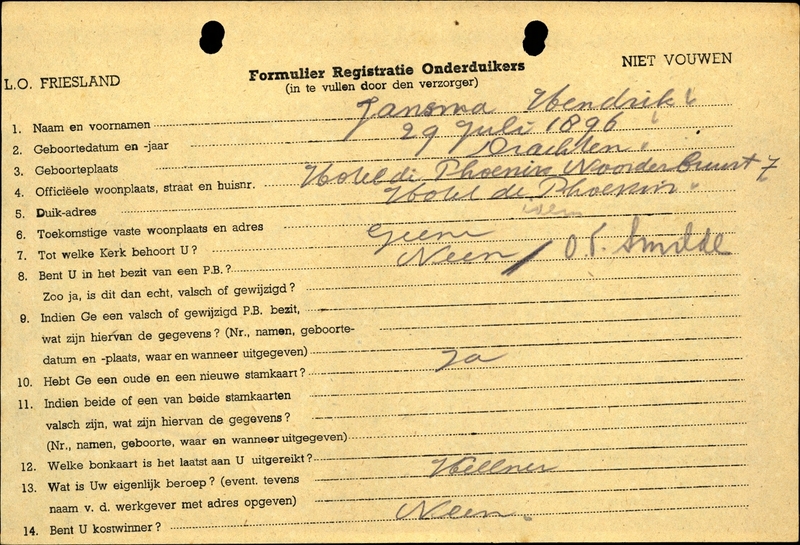 L.O. FRIESLAND
Formulier Registratie Onderduikers
NIET VOUWEN
(in te vullen door den verzorger)
1. Naam en voornamen Jansma Hendrik
2. Geboortedatum en -jaar 29 Juli 1896
3. Geboorteplaats Drachten
4. Officiëele woonplaats, straat en huisnr. Hotel de Phoenix Noorderbuurt 7
5. Duik-adres Hotel de Phoenix
6. Toekomstige vaste woonplaats en adres idem
7. Tot welke Kerk behoort U? Geene
8. Bent U in het bezit van een P.B.? Neen / O.T. Smilde
Zoo ja, is dit dan echt, valsch of gewijzigd?
9. Indien Ge een valsch of gewijzigd P.B. bezit,
wat zijn hiervan de gegevens? (Nr., namen, geboorte-
datum en -plaats, waar en wanneer uitgegeven)
10. Hebt Ge een oude en een nieuwe stamkaart? Ja
11. Indien beide of een van beide stamkaarten
valsch zijn, wat zijn hiervan de gegevens?
(Nr., namen, geboorte, waar en wanneer uitgegeven)
12. Welke bonkaart is het laatst aan U uitgereikt?
13. Wat is Uw eigenlijk beroep? (event. tevens Kellner
naam v. d. werkgever met adres opgeven)
14. Bent U kostwinner? Neen